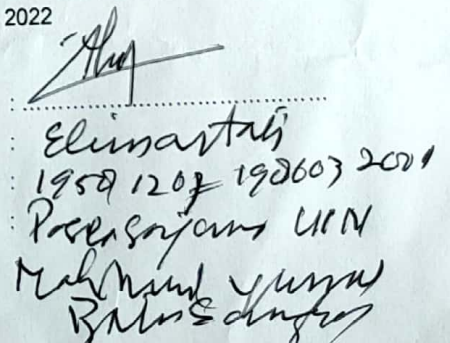 2022
: ........................................
: Elimartati
: 1958 1207 198603 2001
: Pascasarjana UIN
Mahmud Yunus
Batusangkar